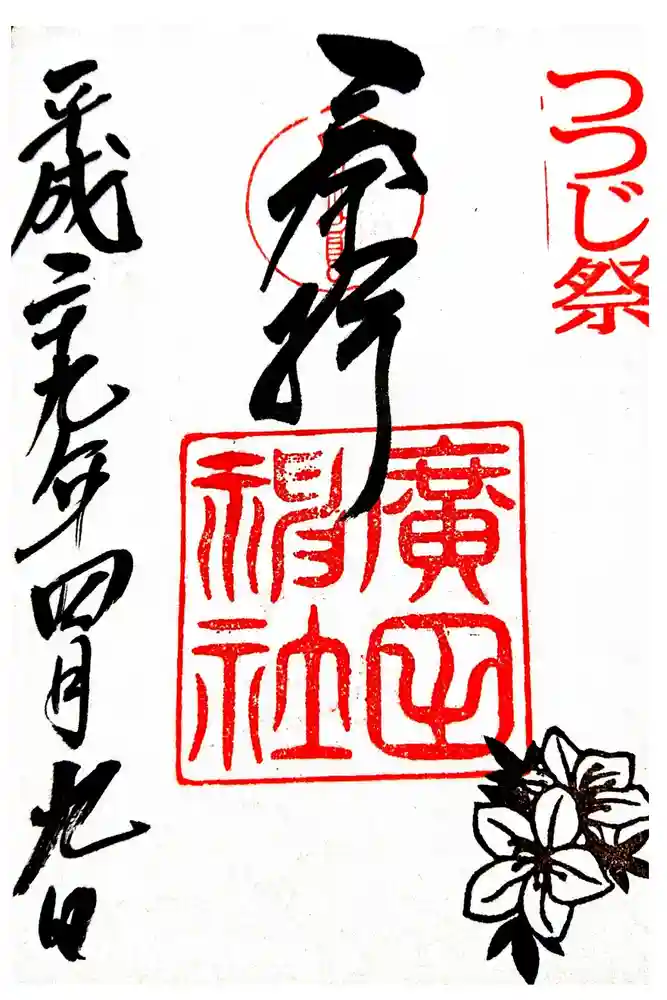 つつじ祭
奉拝
廣田
神社
平成二十九年四月九日